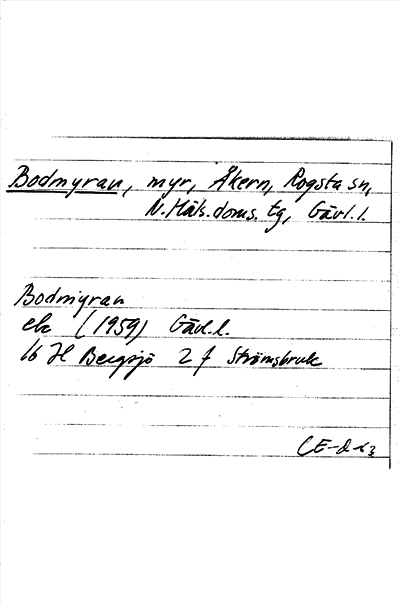 Bodmyran, myr, Åkern, Rogsta sn,
N. Häls. doms. tg, Gävl. l.
Bodmyran
ek (1959) Gävl. l.
16 H Bergsjö 2 f Strömsbruk